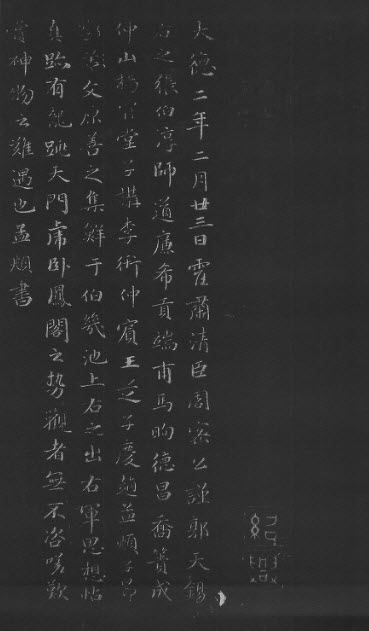 大德二年二月廿三日霍肅清臣周密公謹郭天錫
右之張伯淳師道廉希貢端甫馬昫德昌喬簣成
仲山楊肯堂子構李衎仲賓王芝子慶趙孟頫子昂
鄧文原善之集鮮于伯幾池上右之出右軍思想帖
真跡有龍跳天門虎臥鳳閣之勢觀者無不咨嗟歎
賞神物之難遇也孟頫書